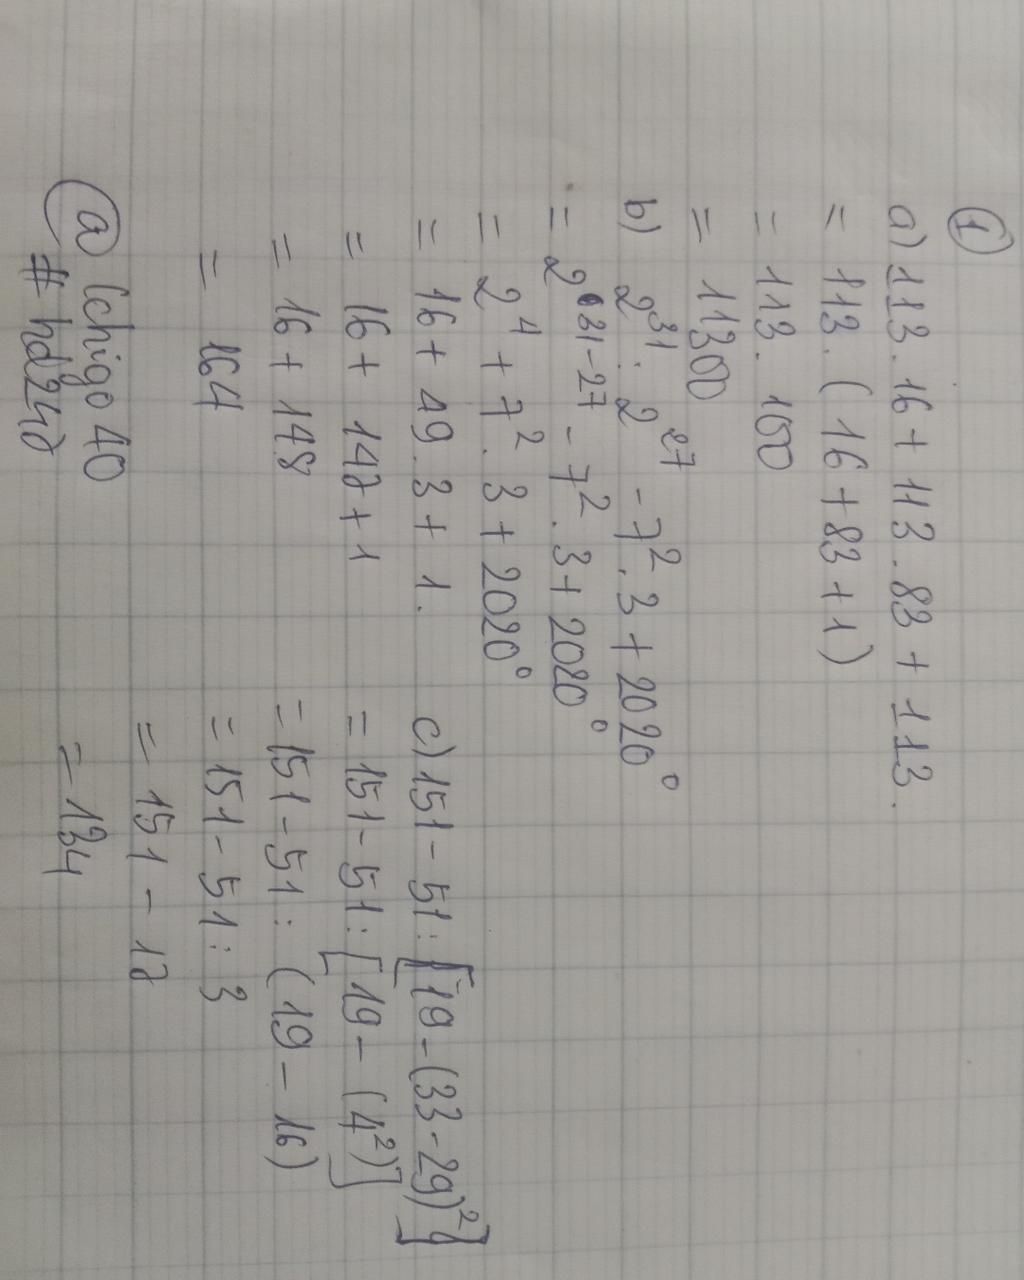 1
a) 113 . 16 + 113 . 83 + 113.
= 113. ( 16 + 83 + 1 )
= 113. 100
= 11300
b) 2³¹ : 2²⁷ - 7² . 3 + 2020⁰
= 2³¹⁻²⁷ - 7² . 3 + 2020⁰
= 2⁴ + 7² . 3 + 2020⁰
= 16 + 49 . 3 + 1.
= 16 + 147 + 1
= 16 + 148
= 164
c) 151 - 51 : [19 - (33 - 29)²]
= 151 - 51 : [19 - (4²)]
= 151 - 51 : (19 - 16)
= 151 - 51 : 3
= 151 - 17
= 134
@ Ichigo 40
# hd247